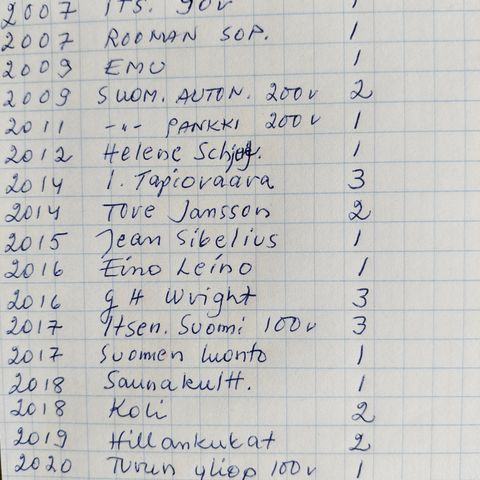 2007 ITS. 90v 1
2007 ROOMAN SOP. 1
2009 EMU 1
2009 SUOM. AUTON. 200v 2
2011 -"- PANKKI 200v 1
2012 Helene Schjef. 1
2014 I. Tapiovaara 3
2014 Tove Jansson 2
2015 Jean Sibelius 1
2016 Eino Leino 1
2016 G H Wright 3
2017 Itsen. Suomi 100v 3
2017 Suomen luonto 1
2018 Saunakultt. 1
2018 Koli 2
2019 Hillankukat 2
2020 Turun yliop 100v 1